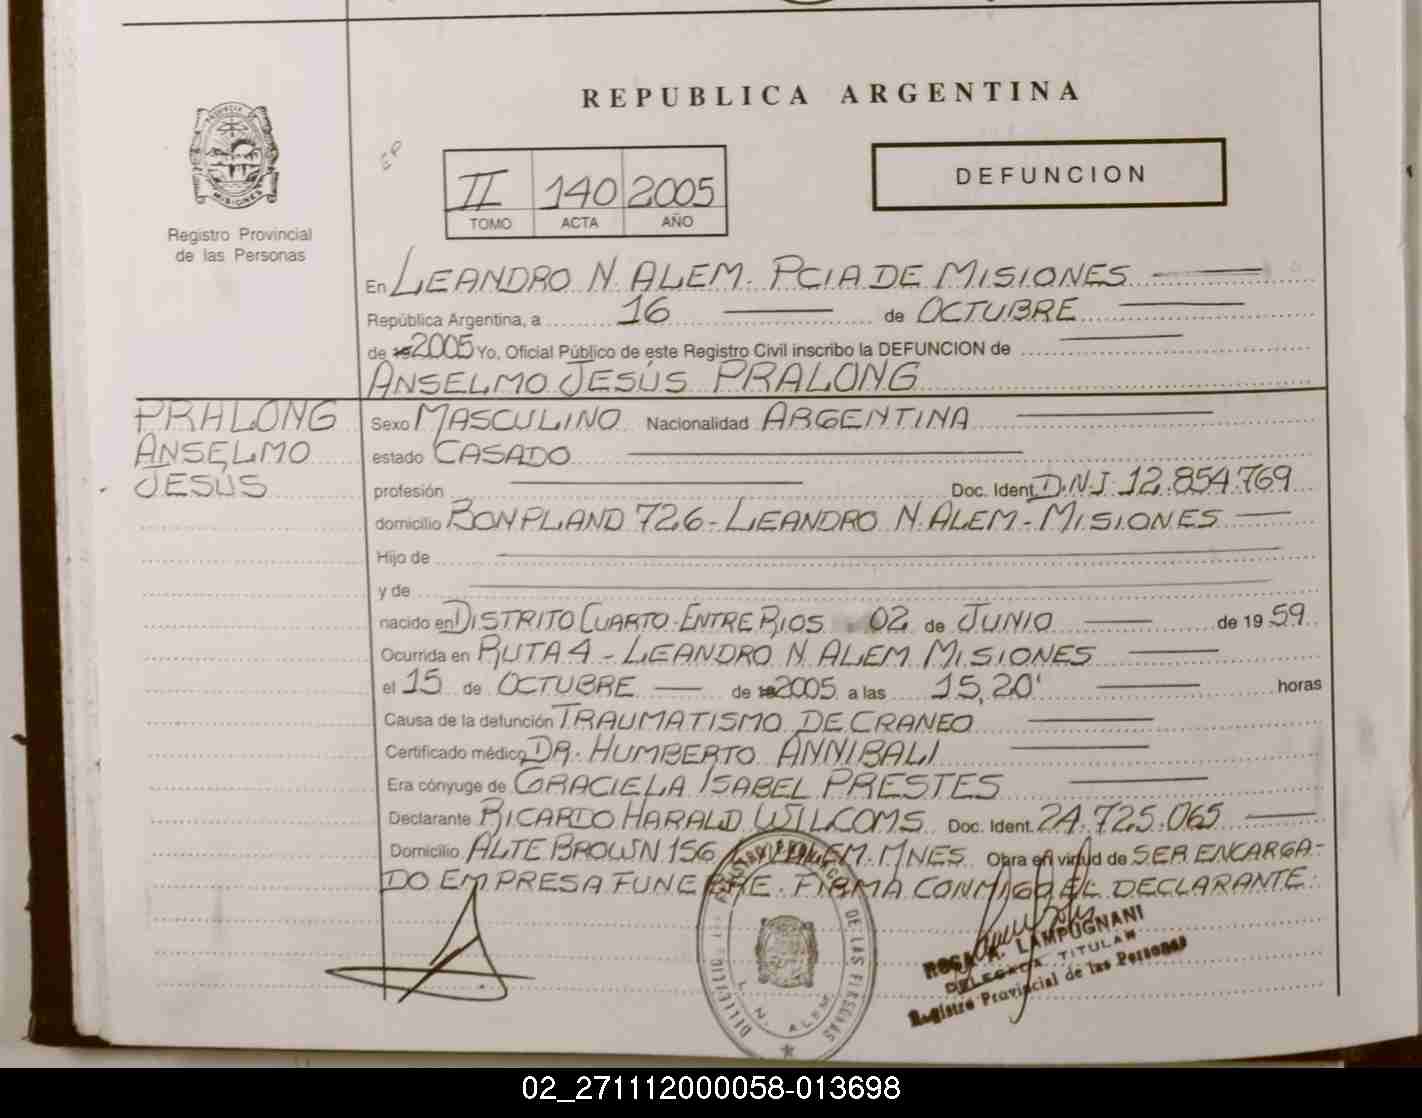 REPUBLICA ARGENTINA
PROVINCIA
MISIONES
Registro Provincial
de las Personas
II 140 2005
TOMO ACTA AÑO
DEFUNCION
En LEANDRO N. ALEM. PCIA DE MISIONES
República Argentina, a 16 de OCTUBRE
de 19 2005 Yo, Oficial Público de este Registro Civil inscribo la DEFUNCION de
ANSELMO JESÚS PRALONG
PRALONG
ANSELMO
JESÚS
Sexo MASCULINO Nacionalidad ARGENTINA
estado CASADO
profesión Doc. Ident. D.N.I. 12.854.769
domicilio BONPLAND 726 - LEANDRO N. ALEM - MISIONES
Hijo de
y de
nacido en DISTRITO CUARTO - ENTRE RIOS 02 de JUNIO de 19 59
Ocurrida en RUTA 4 - LEANDRO N. ALEM MISIONES
el 15 de OCTUBRE de 19 2005 a las 15,20' horas
Causa de la defunción TRAUMATISMO DE CRANEO
Certificado médico DR. HUMBERTO ANNIBALI
Era cónyuge de GRACIELA ISABEL PRESTES
Declarante RICARDO HARALD WILCOMS Doc. Ident. 24.725.065
Domicilio ALTE BROWN 156 ALEM. MNES Obra en virtud de SER ENCARGA-
DO EMPRESA FUNEBRE. FIRMA CONMIGO EL DECLARANTE.
DE LAS PERSONAS
L. N. ALEM
ROSA A. LAMPUGNANI
DELEGADA TITULAR
Registro Provincial de las Personas
02_271112000058-013698